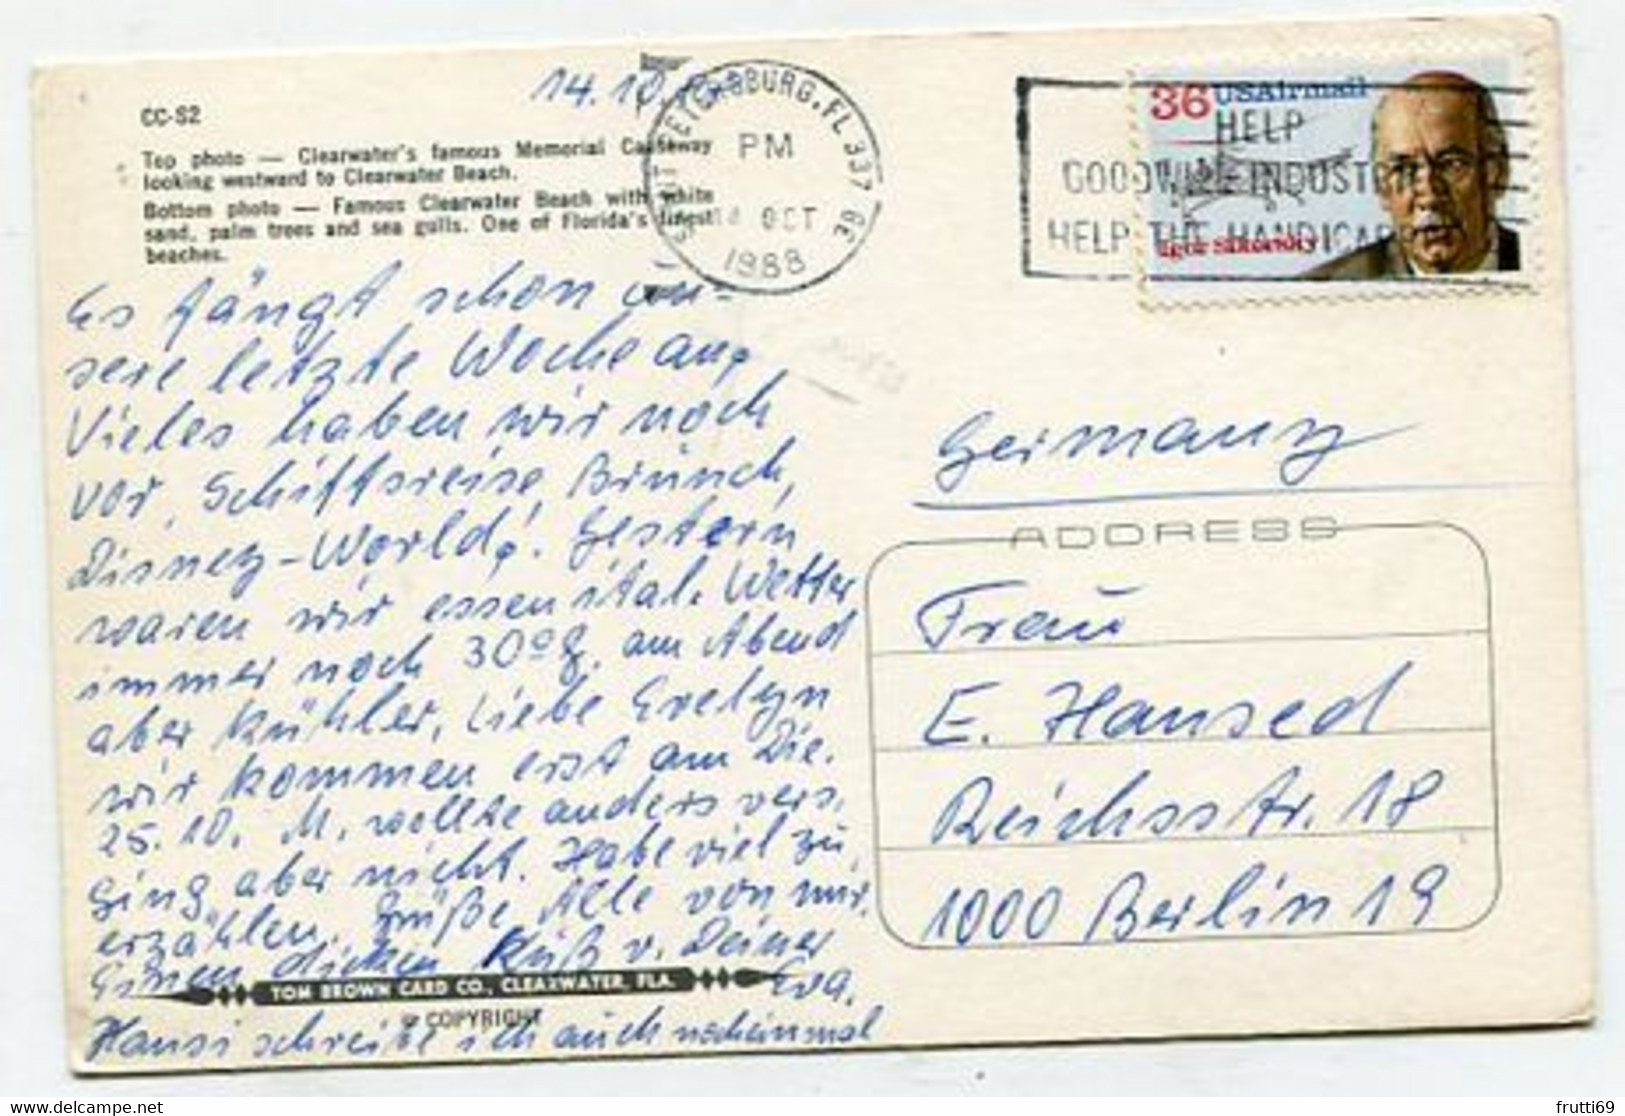 14.10.
CC-S2
Top photo — Clearwater's famous Memorial Causeway
looking westward to Clearwater Beach.
Bottom photo — Famous Clearwater Beach with white
sand, palm trees and sea gulls. One of Florida's finest
beaches.
PETERSBURG, FL 337
PM
OCT
1988
36 USAirmail
Igor Sikorsky
HELP
GOODWILL INDUSTR
HELP THE HANDICAP
Es fängt schon un-
sere letzte Woche an,
Vieles haben wir noch
vor, Schiffsreise, Brunch,
Disney-World! Gestern
waren wir essen ital. Wetter
immer noch 30° am Abend
aber kühler, Liebe Evelyn
wir kommen erst am Die.
25.10. M. wollte anders vers.
Ging aber nicht. Habe viel zu
erzählen. Grüße Alle von mir.
Einen dicken Kuß v. Deiner
Eva.
TOM BROWN CARD CO., CLEARWATER, FLA.
© COPYRIGHT
Hansi schreibe ich auch nocheinmal
Germany
ADDRESS
Frau
E. Hansed
Reichsstr. 18
1000 Berlin 19
frutti69